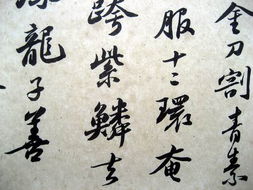 金刀割青素
服十二環奄
跨紫鱗去
龍子善